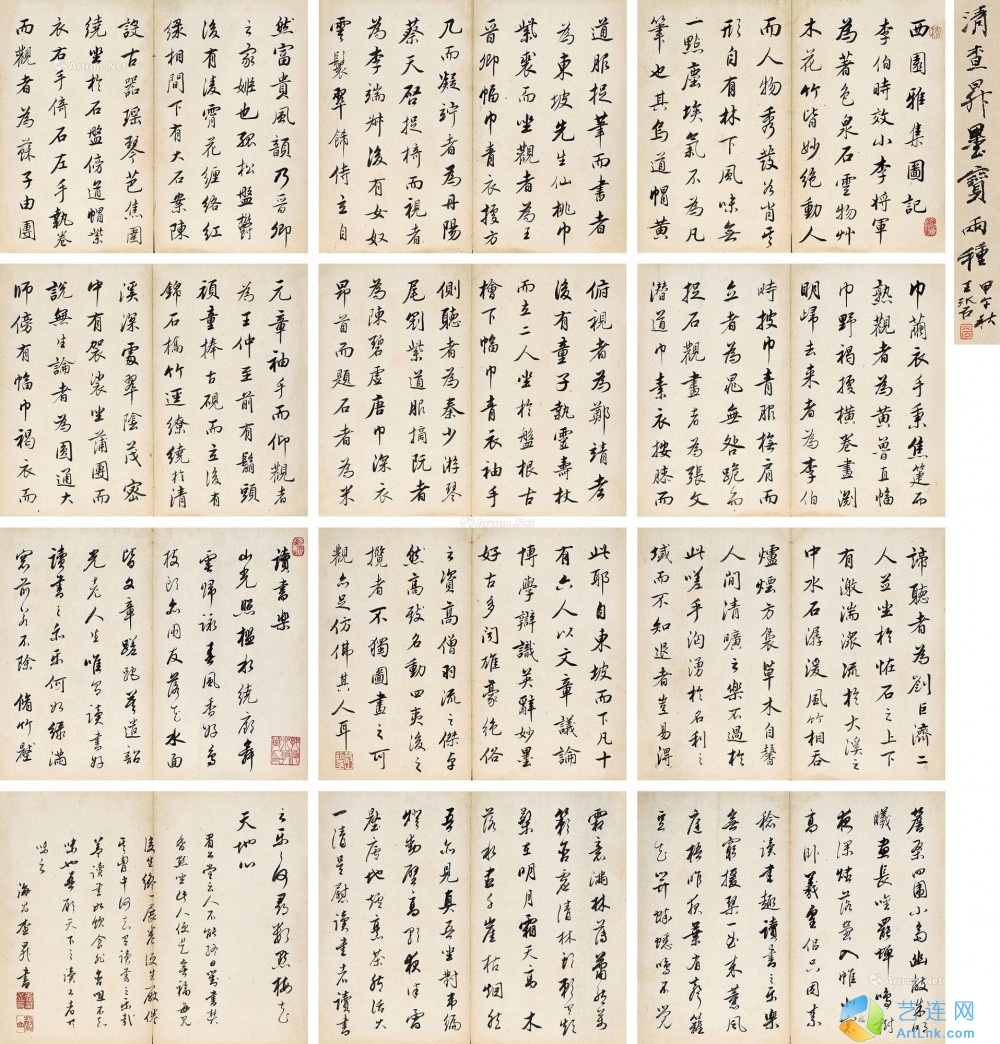 清查昇墨寶兩種
甲午秋
西園雅集圖記
李伯時效小李將軍
為著色泉石雲物艸
木花竹皆妙絕動人
而人物秀發各肖其
形自有林下風味無
一點塵埃氣不為凡
筆也其烏道帽黃
道服捉筆而書者
為東坡先生仙桃巾
紫裘而坐觀者為王
晉卿幅巾青衣據方
几而凝竚者為丹陽
蔡天啓捉椅而視者
為李端叔後有女奴
雲鬟翠飾侍立自
然富貴風韻乃晉卿
之家姬也孤松盤鬱
後有凌霄花纏絡紅
綠相間下有大石案陳
設古器瑤琴芭蕉圍
繞坐於石盤傍道帽紫
衣右手倚石左手執卷
而觀者為蘇子由團
巾繭衣手秉焦箑而
熟觀者為黃魯直幅
巾野褐據橫卷畫淵
明歸去來者為李伯
時披巾青服撫肩而
立者為晁無咎跪而
捉石觀畫者為張文
潛道巾素衣按膝而
俯視者為鄭靖老
後有童子執靈壽杖
而立二人坐於盤根古
檜下幅巾青衣袖手
側聽者為秦少游琴
尾劉紫道服摘阮者
為陳碧虛唐巾深衣
昴首而題石者為米
元章袖手而仰觀者
為王仲至前有鬅頭
頑童捧古硯而立後有
錦石橋竹逕繚繞於清
溪深處翠陰茂密
中有袈裟坐蒲團而
說無生論者為圓通大
師傍有幅巾褐衣而
諦聽者為劉巨濟二
人並坐於恠石之上下
有激湍淙流於大溪之
中水石潺湲風竹相吞
爐煙方裊草木自馨
人間清曠之樂不過於
此嗟乎洶湧於名利之
域而不知退者豈易得
此耶自東坡而下凡十
有六人以文章議論
博學辯識英辭妙墨
好古多聞雄豪絕俗
之資高僧羽流之傑卓
然高致名動四夷後之
攬者不獨圖畫之可
觀亦足仿佛其人耳
讀書樂
山光照檻水繞廊舞
雩歸詠春風香好鳥
枝頭亦朋友落花水面
皆文章蹉跎莫遣韶
光老人生唯有讀書好
讀書之樂樂何如綠滿
窗前草不除 脩竹壓
簷桑四圍小齋幽敞朱明
曦晝長吟罷蟬鳴樹
夜深燼落螢入幃北窗
高卧羲皇侶只因素
稔讀書趣讀書之樂樂
無窮援琴一曲來薰風
庭梧昨夜葉有聲籬
豆花開蟋蟀鳴不覺
意滿林薄蕭然萬
籟含虛清
明月霜天高 木
落水盡千崖枯
吾亦見真吾坐對韋編
燈動壁高歌夜半雪
壓廬地爐茶
一清足慰讀書者讀書
之樂何處尋數點梅花
天地心
後生
味之
海昌查昇書
艺连网
ArtLnk.com